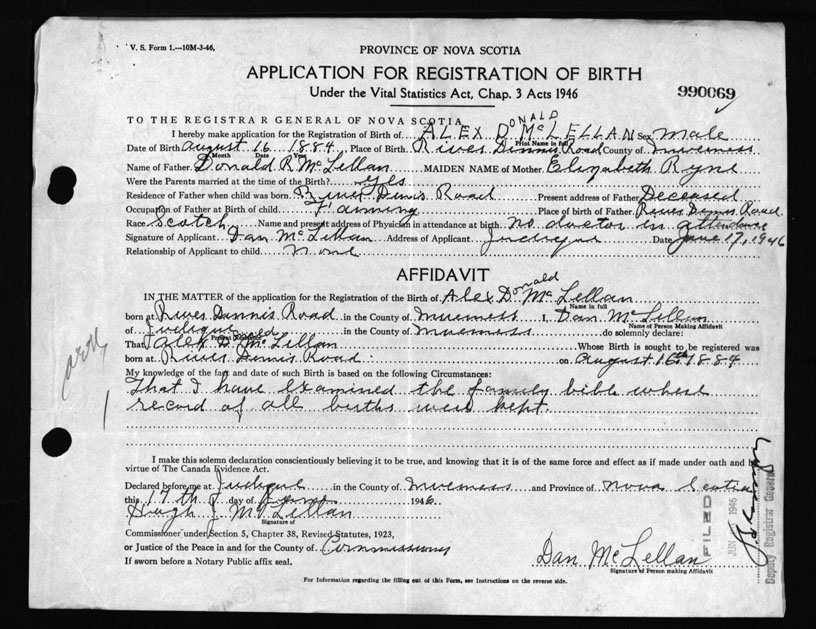 V. S. Form 1.—10M-3-46.
PROVINCE OF NOVA SCOTIA
APPLICATION FOR REGISTRATION OF BIRTH
Under the Vital Statistics Act, Chap. 3 Acts 1946
990069
TO THE REGISTRAR GENERAL OF NOVA SCOTIA
DONALD
I hereby make application for the Registration of Birth of ALEX D. McLELLAN Sex Male
Print Name in full
Date of Birth August 16 1884 Place of Birth River Dennis Road County of Inverness
Month Date Year
Name of Father Donald R McLellan MAIDEN NAME of Mother Elizabeth Ryne
Were the Parents married at the time of the Birth? Yes
Residence of Father when child was born River Dennis Road Present address of Father Deceased
Occupation of Father at Birth of child Farming Place of birth of Father River Dennis Road
Race Scotch Name and present address of Physician in attendance at birth no doctor in attendance
Signature of Applicant Dan McLellan Address of Applicant Judique Date June 17, 1946
Relationship of Applicant to child None
AFFIDAVIT
Donald
IN THE MATTER of the application for the Registration of the Birth of Alex D. McLellan
Name in full
born at River Dennis Road in the County of Inverness I, Dan McLellan
Name of Person Making Affidavit
of Judique in the County of Inverness do solemnly declare:
That Alex D. McLellan Whose Birth is sought to be registered was
born at River Dennis Road on August 16th 1884
My knowledge of the fact and date of such Birth is based on the following Circumstances:
That I have examined the family bible where
record of all births were kept.
I make this solemn declaration conscientiously believing it to be true, and knowing that it is of the same force and effect as if made under oath and by
virtue of The Canada Evidence Act.
Declared before me at Judique in the County of Inverness and Province of Nova Scotia
this 17th day of June 1946
Hugh J. McLellan
Signature of
Commissioner under Section 5, Chapter 38, Revised Statutes, 1923,
or Justice of the Peace in and for the County of Commissioner
If sworn before a Notary Public affix seal.
Dan McLellan
Signature of Person making Affidavit
For Information regarding the filling out of this Form, see Instructions on the reverse side.
FILED
JUN 1946
Deputy Registrar General